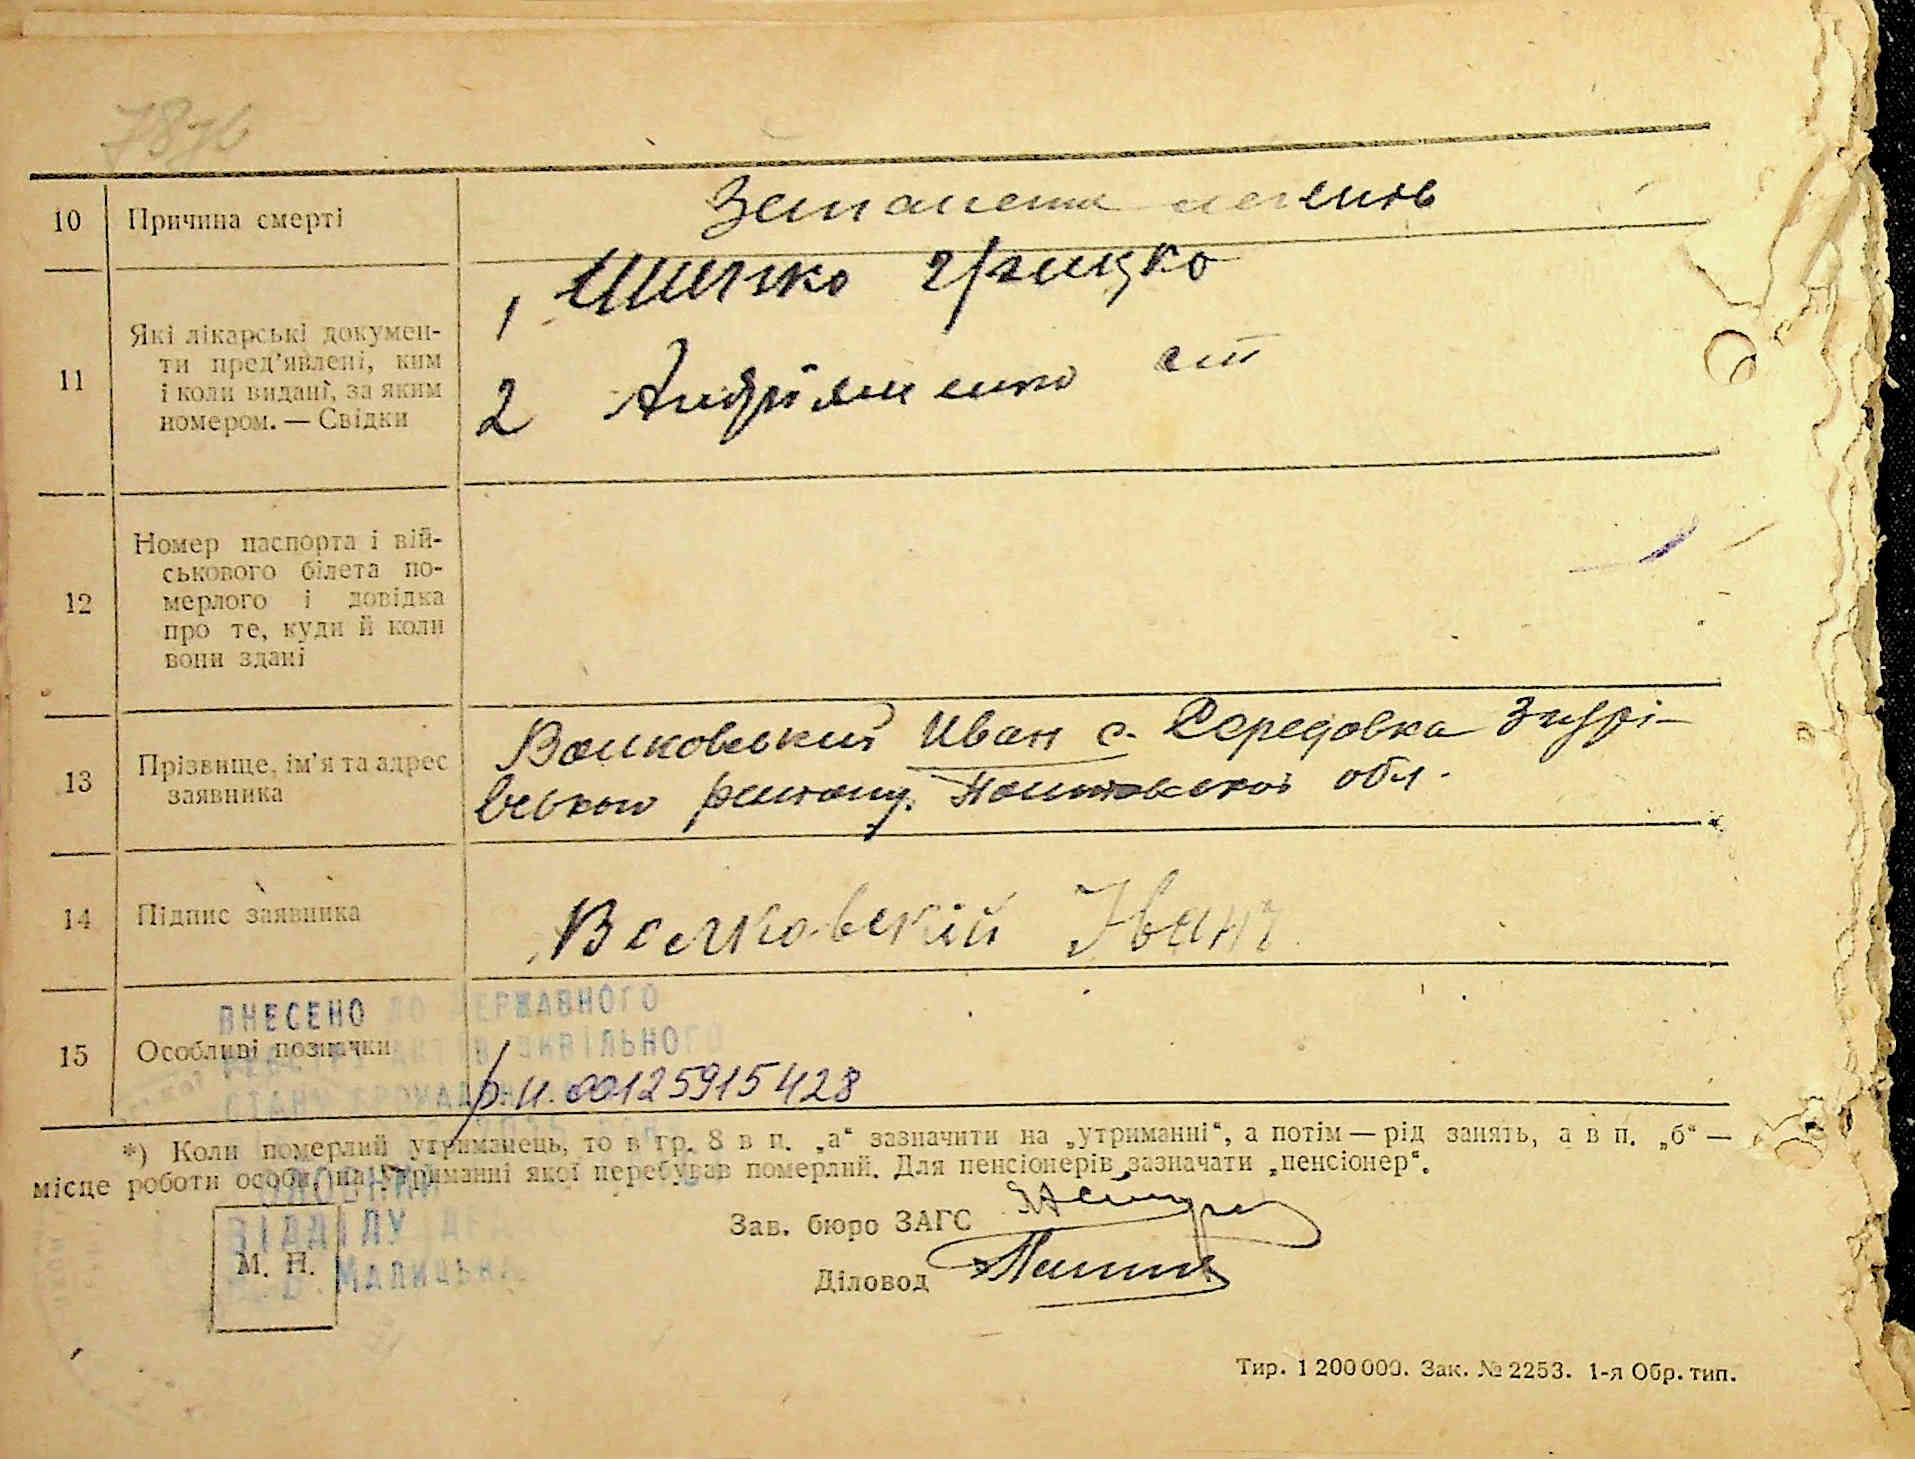 10 Причина смерті
Запалення легень
11 Які лікарські докумен-
ти пред'явлені, ким
і коли видані, за яким
номером. — Свідки
1 Грицко
2 Андріяшенко
12 Номер паспорта і вій-
ськового білета по-
мерлого і довідка
про те, куди й коли
вони здані
13 Прізвище, ім'я та адрес
заявника
Волковський Иван с. Середовка Згурі-
вського району. Полтавської обл.
14 Підпис заявника
Волковскій Іван
ВНЕСЕНО ДО ДЕРЖАВНОГО
15 Особливі позначки
р.н. 00125915428
*) Коли померлий утриманець, то в гр. 8 в п. „а“ зазначити на „утриманні“, а потім — рід занять, а в п. „б“ —
місце роботи особи, на утриманні якої перебував померлий. Для пенсіонерів зазначати „пенсіонер“.
ВІДДІЛУ
Зав. бюро ЗАГС
М. П. Малицька
Діловод
Тир. 1 200 000. Зак. № 2253. 1-я Обр. тип.